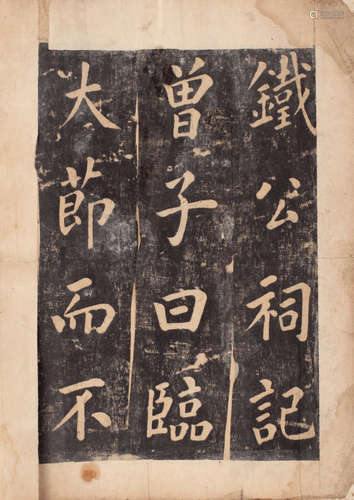 鐵公祠記
曾子曰臨
大節而不